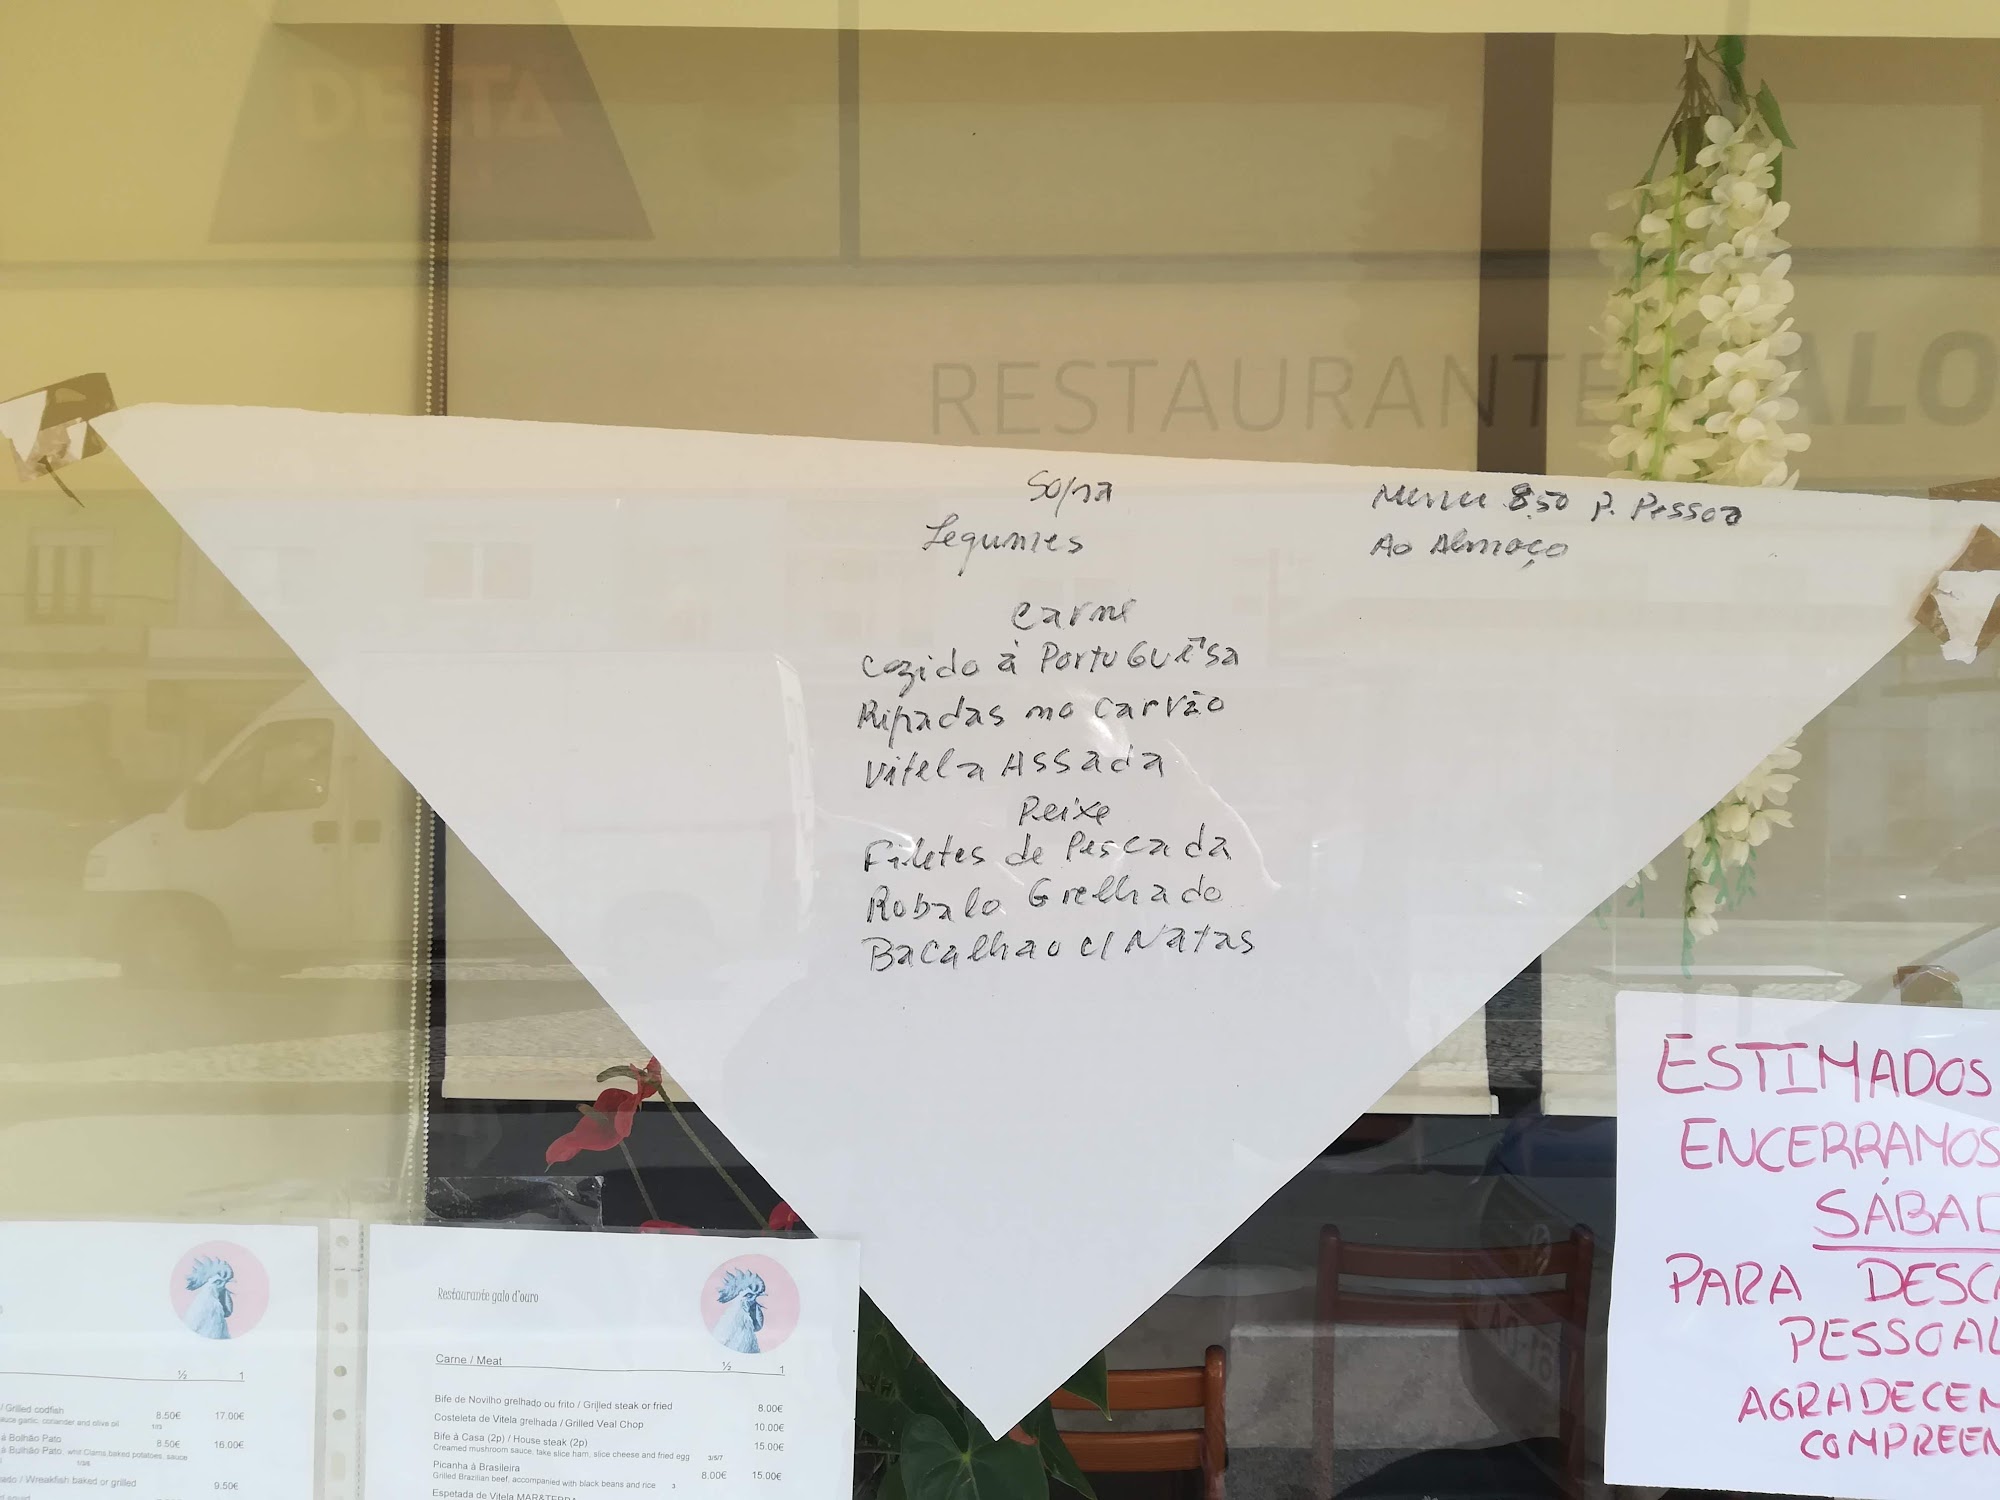 DELTA
RESTAURANTE GALO
Sopa
Legumes
Menu 8.50 P. Pessoa
Ao Almoço
Carne
Cozido à Portuguêsa
Ripadas no Carvão
Vitela Assada
Peixe
Filetes de Pescada
Robalo Grelhado
Bacalhao c/ Natas
ESTIMADOS
ENCERRAMOS
SÁBAD
PARA DESCA
PESSOAL
AGRADECEM
COMPREEN
½ 1
/ Grilled codfish 8.50€ 17.00€
sauce garlic, coriander and olive oil 1/3
à Bolhão Pato 8.50€ 16.00€
à Bulhão Pato, whit Clams,baked potatoes, sauce
1/3/4
/ Wreakfish baked or grilled 9.50€
Restaurante galo d'ouro
Carne / Meat ½ 1
Bife de Novilho grelhado ou frito / Grilled steak or fried 8.00€
Costeleta de Vitela grelhada / Grilled Veal Chop 10.00€
Bife à Casa (2p) / House steak (2p) 15.00€
Creamed mushroom sauce, take slice ham, slice cheese and fried egg 3/5/7
Picanha à Brasileira 8.00€ 15.00€
Grilled Brazilian beef, accompanied with black beans and rice 3
Espetada de Vitela MAR&TERRA